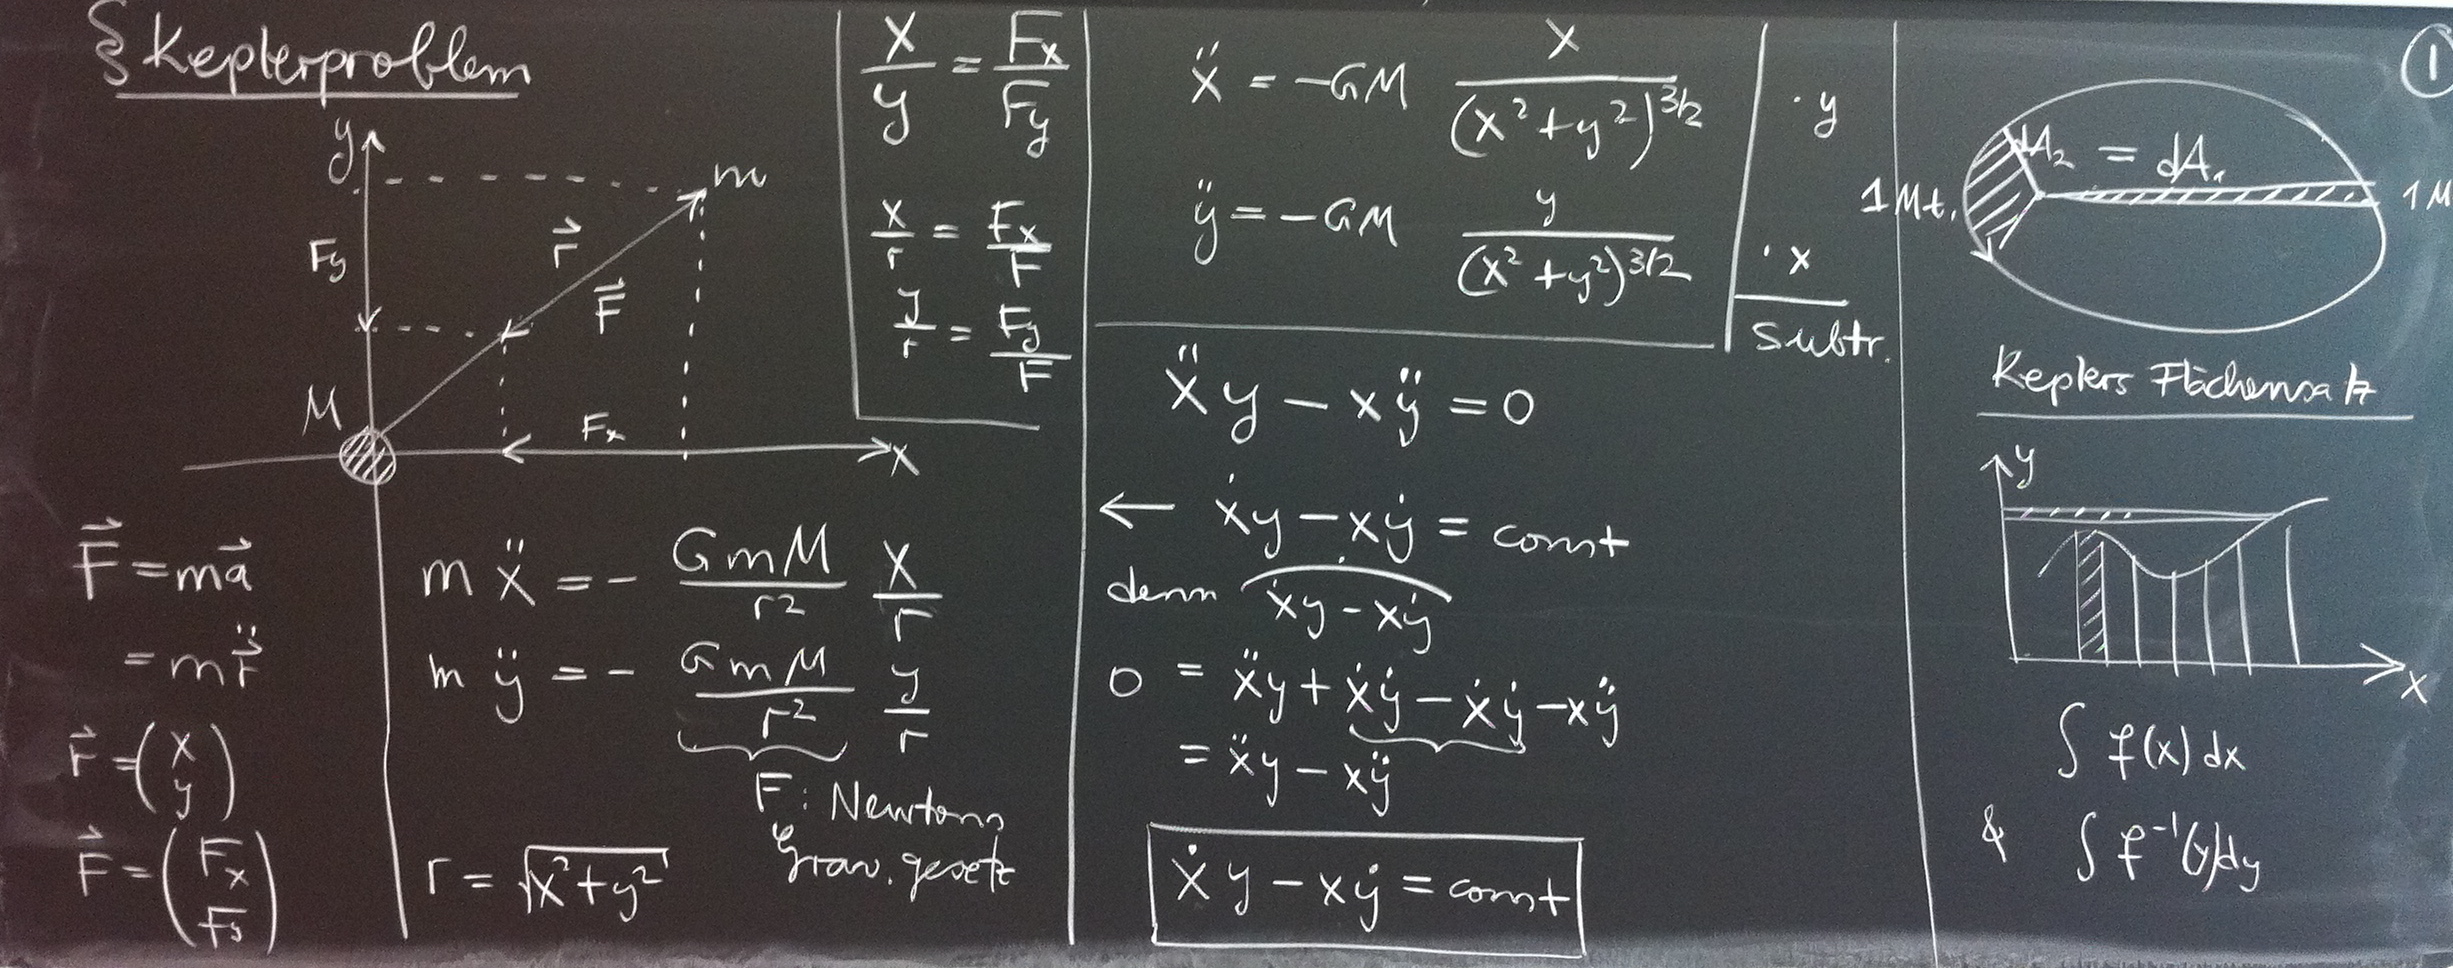 § Keplerproblem
y
m
r⃗
F⃗
Fy
M
Fx
x
F⃗ = ma⃗
= mr⃗̈
r⃗ = (x y)
F⃗ = (Fx Fy)
mẍ = - GmM/r² x/r
mÿ = - GmM/r² y/r
F: Newtons
Grav.gesetz
r = √(x²+y²)
x/y = Fx/Fy
x/r = Fx/F
y/r = Fy/F
ẍ = -GM x/(x²+y²)^3/2 | · y
ÿ = -GM y/(x²+y²)^3/2 | · x
Subtr.
ẍy - xÿ = 0
← ẋy - xẏ = const
denn ẋy - xẏ
0 = ẍy + ẋẏ - ẋẏ - xÿ
= ẍy - xÿ
ẋy - xẏ = const
1
dA₂ = dA₁
1 Mt.
1 M
Keplers Flächensatz
y
x
∫ f(x) dx
& ∫ f⁻¹(y) dy